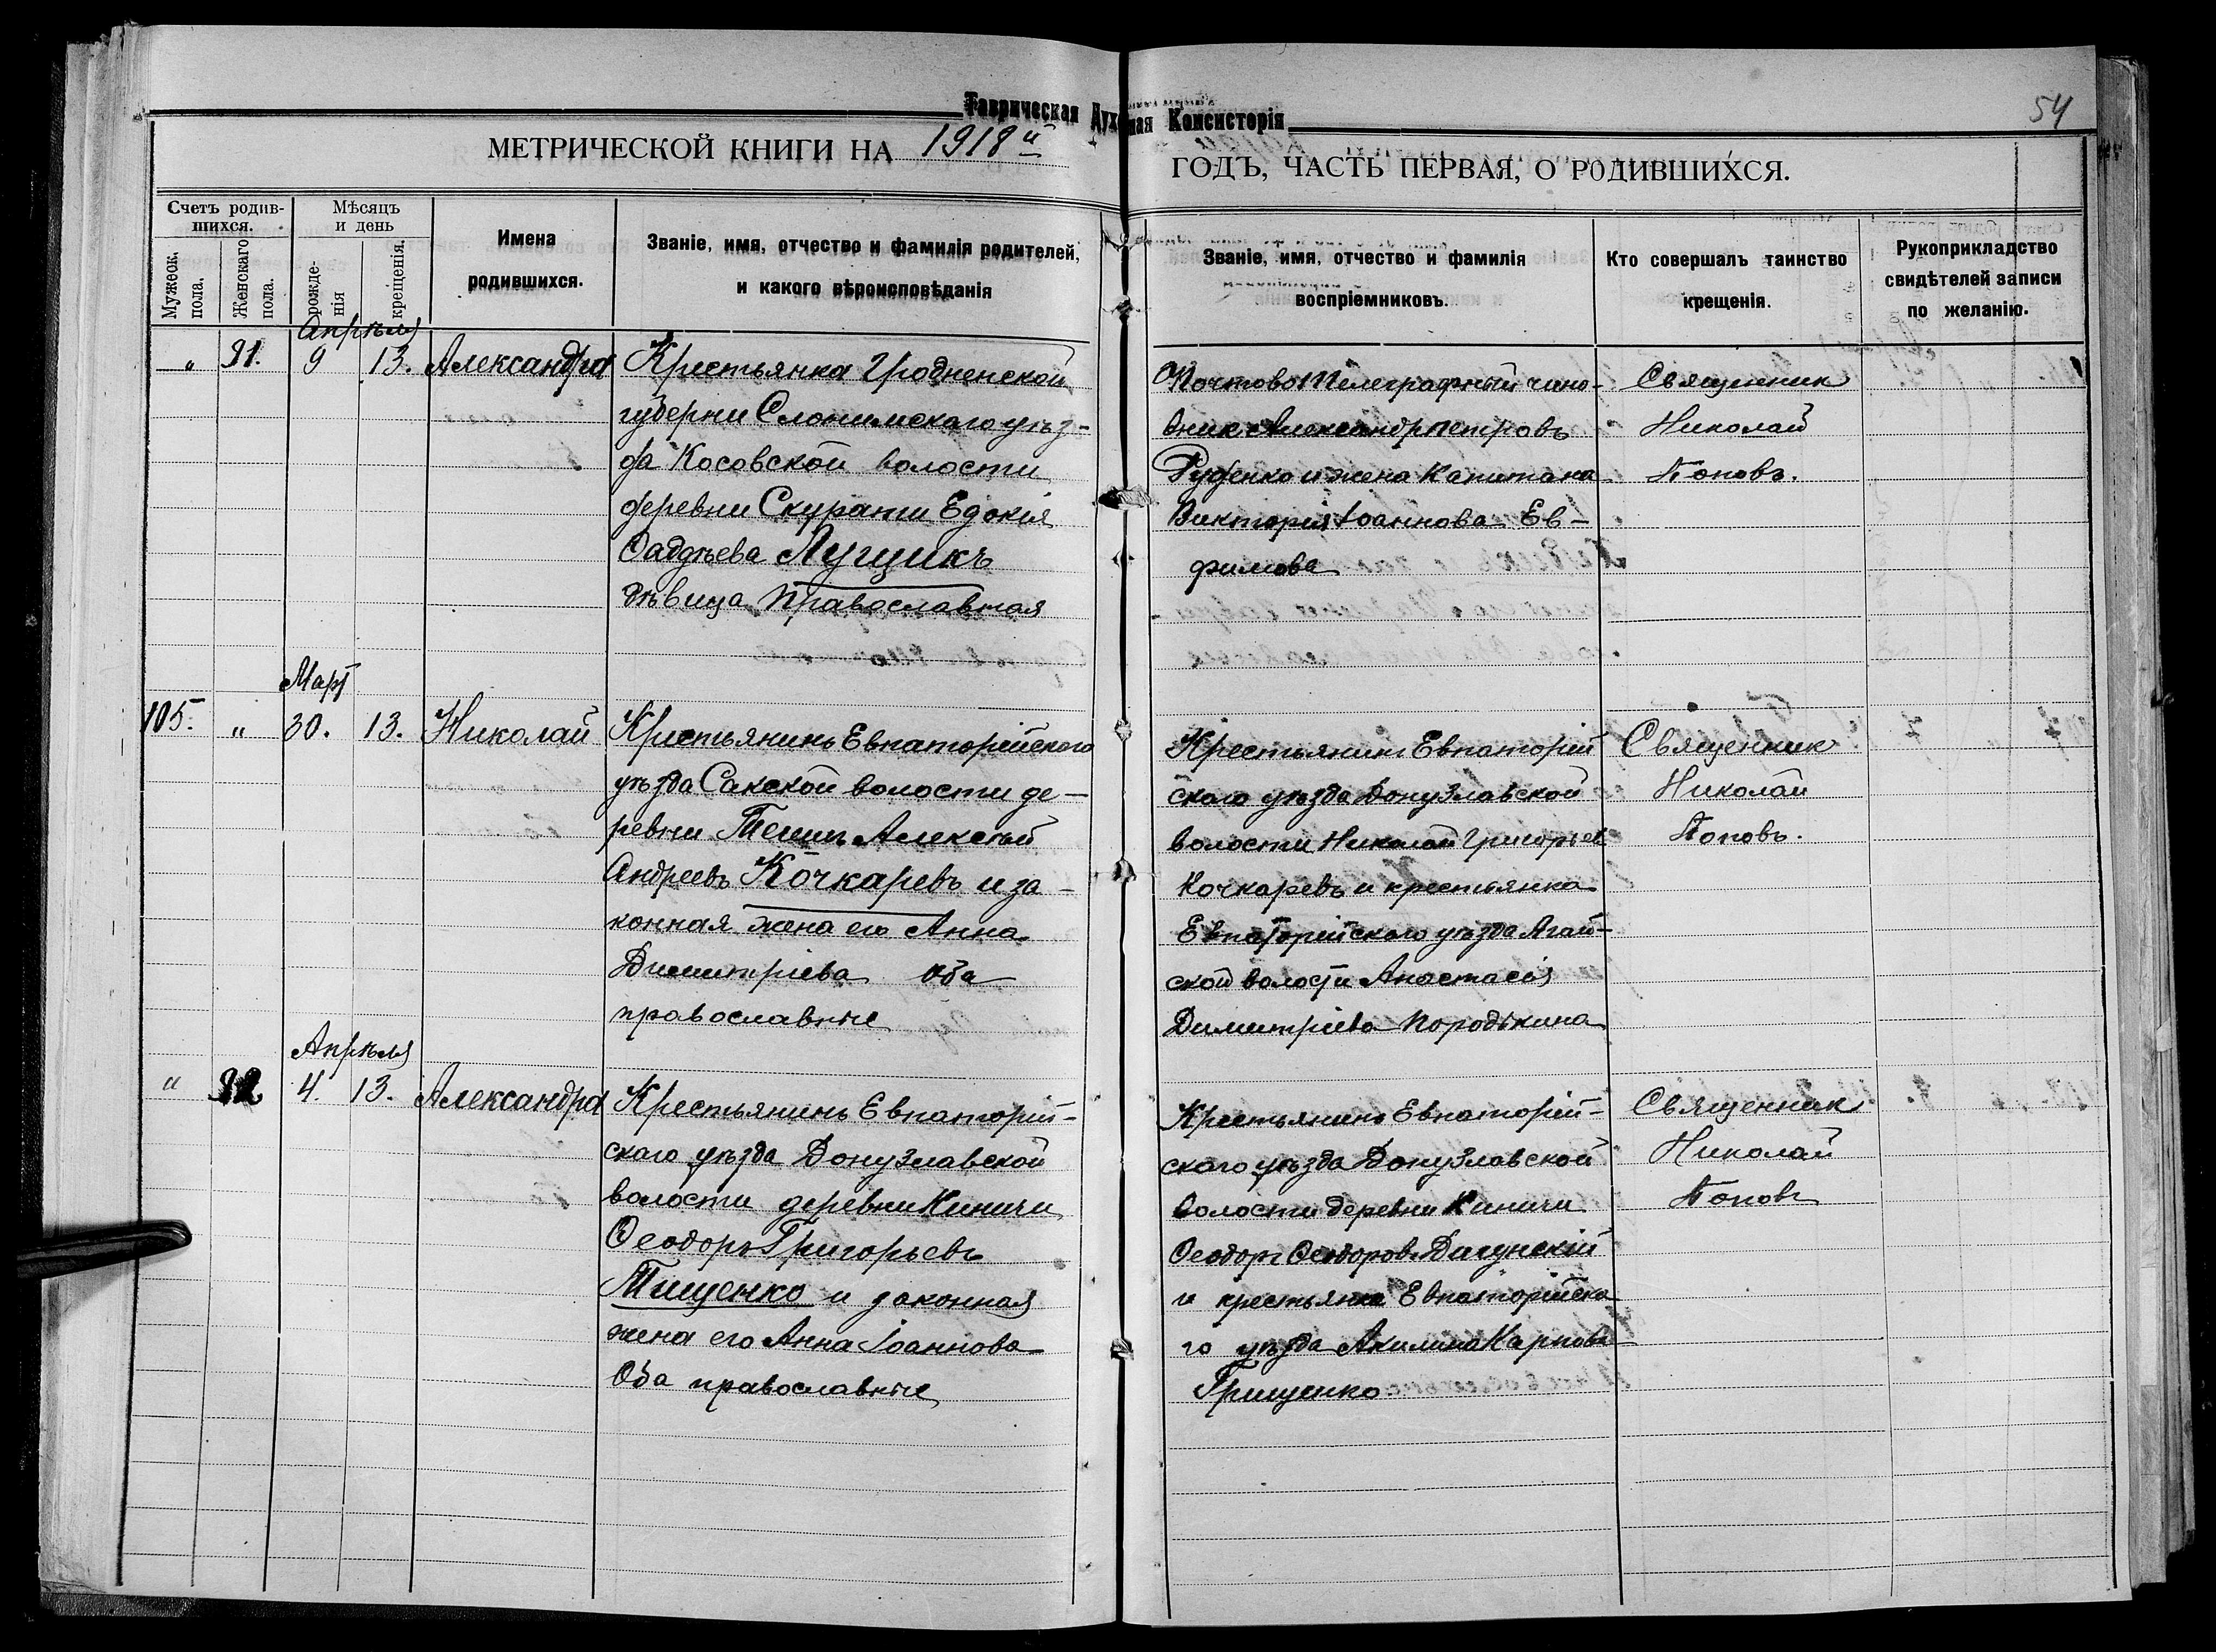 Таврическая Духовная Консисторія
54
МЕТРИЧЕСКОЙ КНИГИ НА 1918й
ГОДЪ, ЧАСТЬ ПЕРВАЯ, О РОДИВШИХСЯ.
Счетъ родив-
шихся.
Мужеск.
пола.
Женскаго
пола.
Мѣсяцъ
и день
рожде-
нія
крещенія.
Имена
родившихся.
Званіе, имя, отчество и фамилія родителей,
и какого вѣроисповѣданія
Званіе, имя, отчество и фамилія
воспріемниковъ.
Кто совершалъ таинство
крещенія.
Рукоприкладство
свидѣтелей записи
по желанію.
Апрѣля
„ 91. 9 13. Александра
Крестьянка Гродненской
губерни Слонимскаго уѣз-
да Косовской волости
деревни Скурати Едокія
Ѳаддѣева Лущикъ
дѣвица православная
Почтово Телеграфный чино-
вник Александр Петровъ
Руденко и жена Капитана
Викторія Іоаннова Ев-
фимова
Священник
Николай
Поповъ.
Март
105. „ 30. 13. Николай
Крестьянинъ Евпаторійского
уѣзда Сакской волости де-
ревни Тешъ Алексѣй
Андреевъ Кочкаревъ и за-
конная жена его Анна
Димитріева Оба
православные
Крестьянинъ Евпаторій
ского уѣзда Донузлавской
волости Николай Григорьев
Кочкаревъ и крестьянка
Евпаторійского уѣзда Агай-
ской волости Анастасія
Димитріева Породькина
Священник
Николай
Поповъ.
Апрѣля
„ 92 4. 13. Александра
Крестьянинъ Евпаторій-
скаго уѣзда Донузлавской
волости деревни Киничи
Ѳеодоръ Григорьевъ
Тищенко и законная
жена его Анна Іоаннова
Оба православные
Крестьянинъ Евпаторій-
ского уѣзда Донузлавской
волости деревни Киничи
Ѳеодоръ Ѳеодоров
и крестьянка Евпаторійска-
го уѣзда Акилина Карпова
Грищенко
Священник
Николай
Поповъ